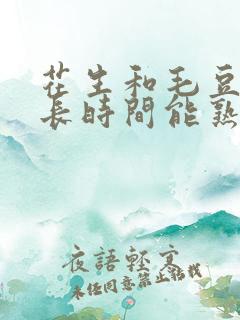 花生和毛豆
長時間能熟
夜語輕寒
未任同意禁止轉載